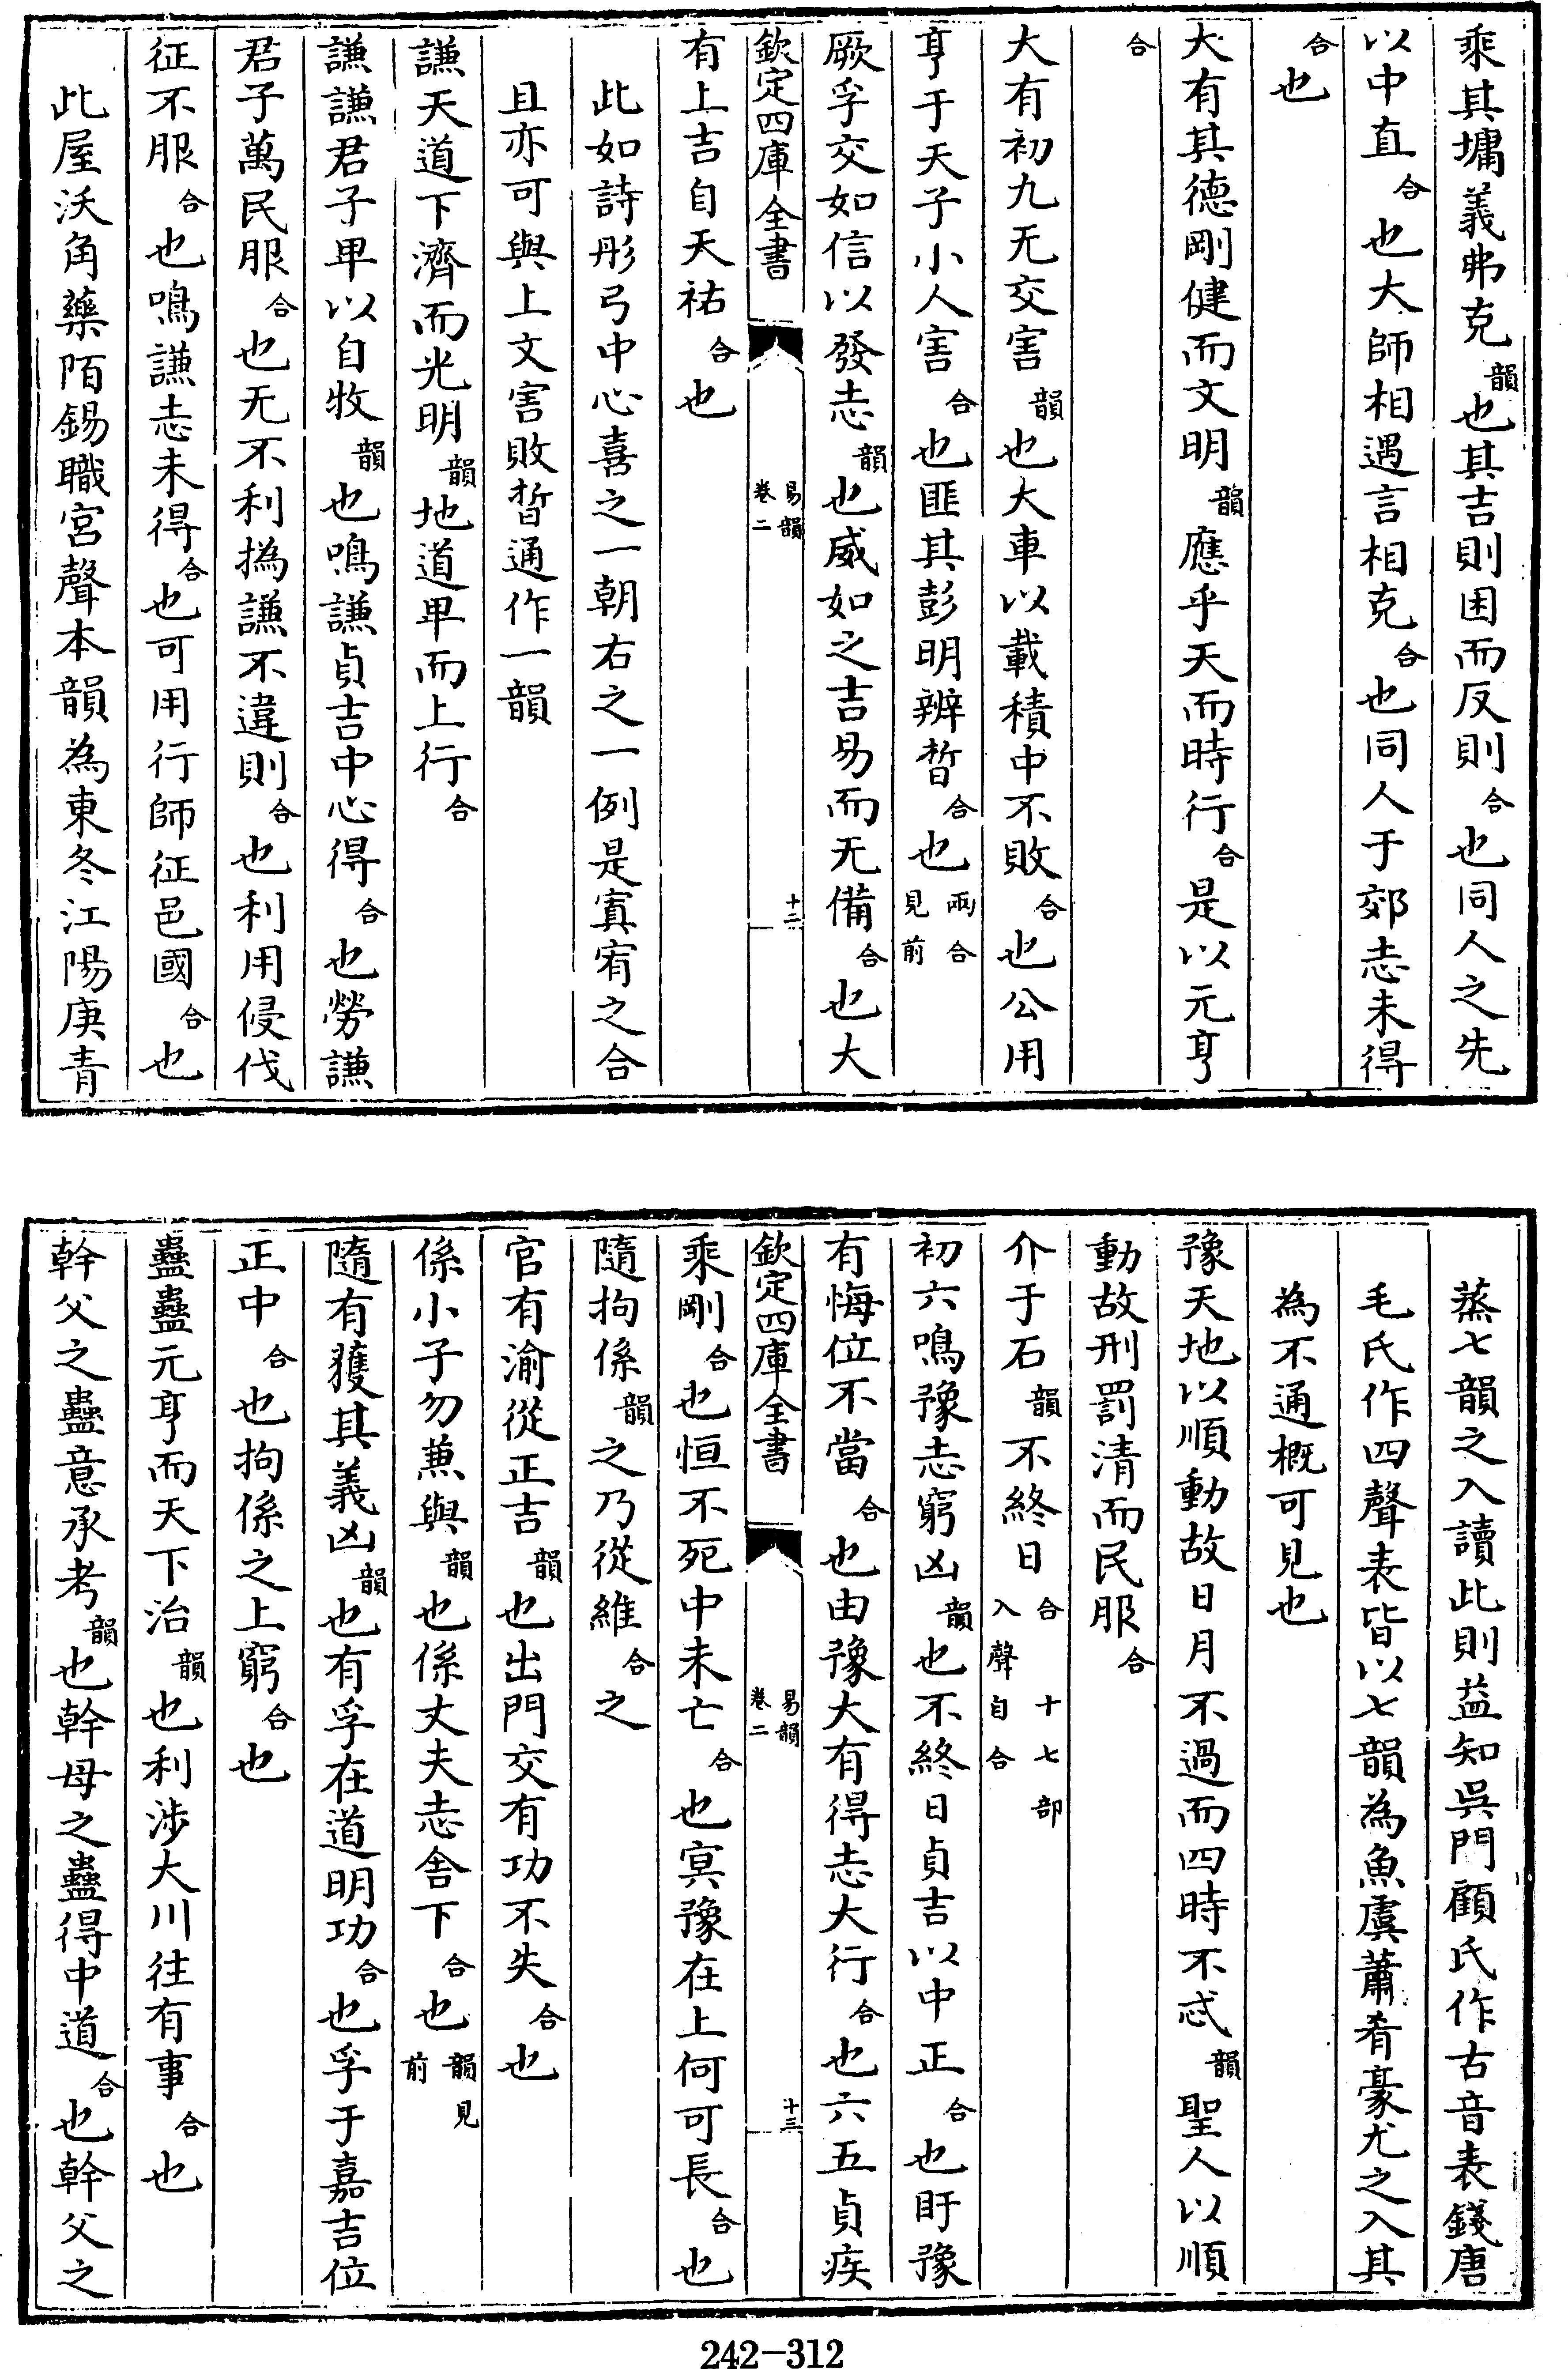 乘其墉義弗克韻也其吉則困而反則合也同人之先
以中直合也大師相遇言相克合也同人于郊志未得
合也
大有其德剛健而文明韻應乎天而時行合是以元亨
合
大有初九无交害韻也大車以載積中不敗合也公用
亨于天子小人害合也匪其彭明辨晳合也兩合見前
厥孚交如信以發志韻也威如之吉易而无備合也大
欽定四庫全書 易韻卷二 十二
有上吉自天祐合也
此如詩彤弓中心喜之一朝右之一例是寘宥之合
且亦可與上文害敗晳通作一韻
謙天道下濟而光明韻地道卑而上行合
謙謙君子卑以自牧韻也鳴謙貞吉中心得合也勞謙
君子萬民服合也无不利撝謙不違則合也利用侵伐
征不服合也鳴謙志未得合也可用行師征邑國合也
此屋沃角藥陌錫職宮聲本韻為東冬江陽庚青
蒸七韻之入讀此則益知吳門顧氏作古音表錢唐
毛氏作四聲表皆以七韻為魚虞蕭肴豪尤之入其
為不通概可見也
豫天地以順動故日月不過而四時不忒韻聖人以順
動故刑罰清而民服合
介于石韻不終日合十七部入聲自合
初六鳴豫志窮凶韻也不終日貞吉以中正合也盱豫
有悔位不當合也由豫大有得志大行合也六五貞疾
欽定四庫全書 易韻卷二 十三
乘剛合也恒不死中未亡合也冥豫在上何可長合也
隨拘係韻之乃從維合之
官有渝從正吉韻也出門交有功不失合也
係小子勿兼與韻也係丈夫志舍下合也韻見前
隨有獲其義凶韻也有孚在道明功合也孚于嘉吉位
正中合也拘係之上窮合也
蠱蠱元亨而天下治韻也利涉大川往有事合也
幹父之蠱意承考韻也幹母之蠱得中道合也幹父之
242-312